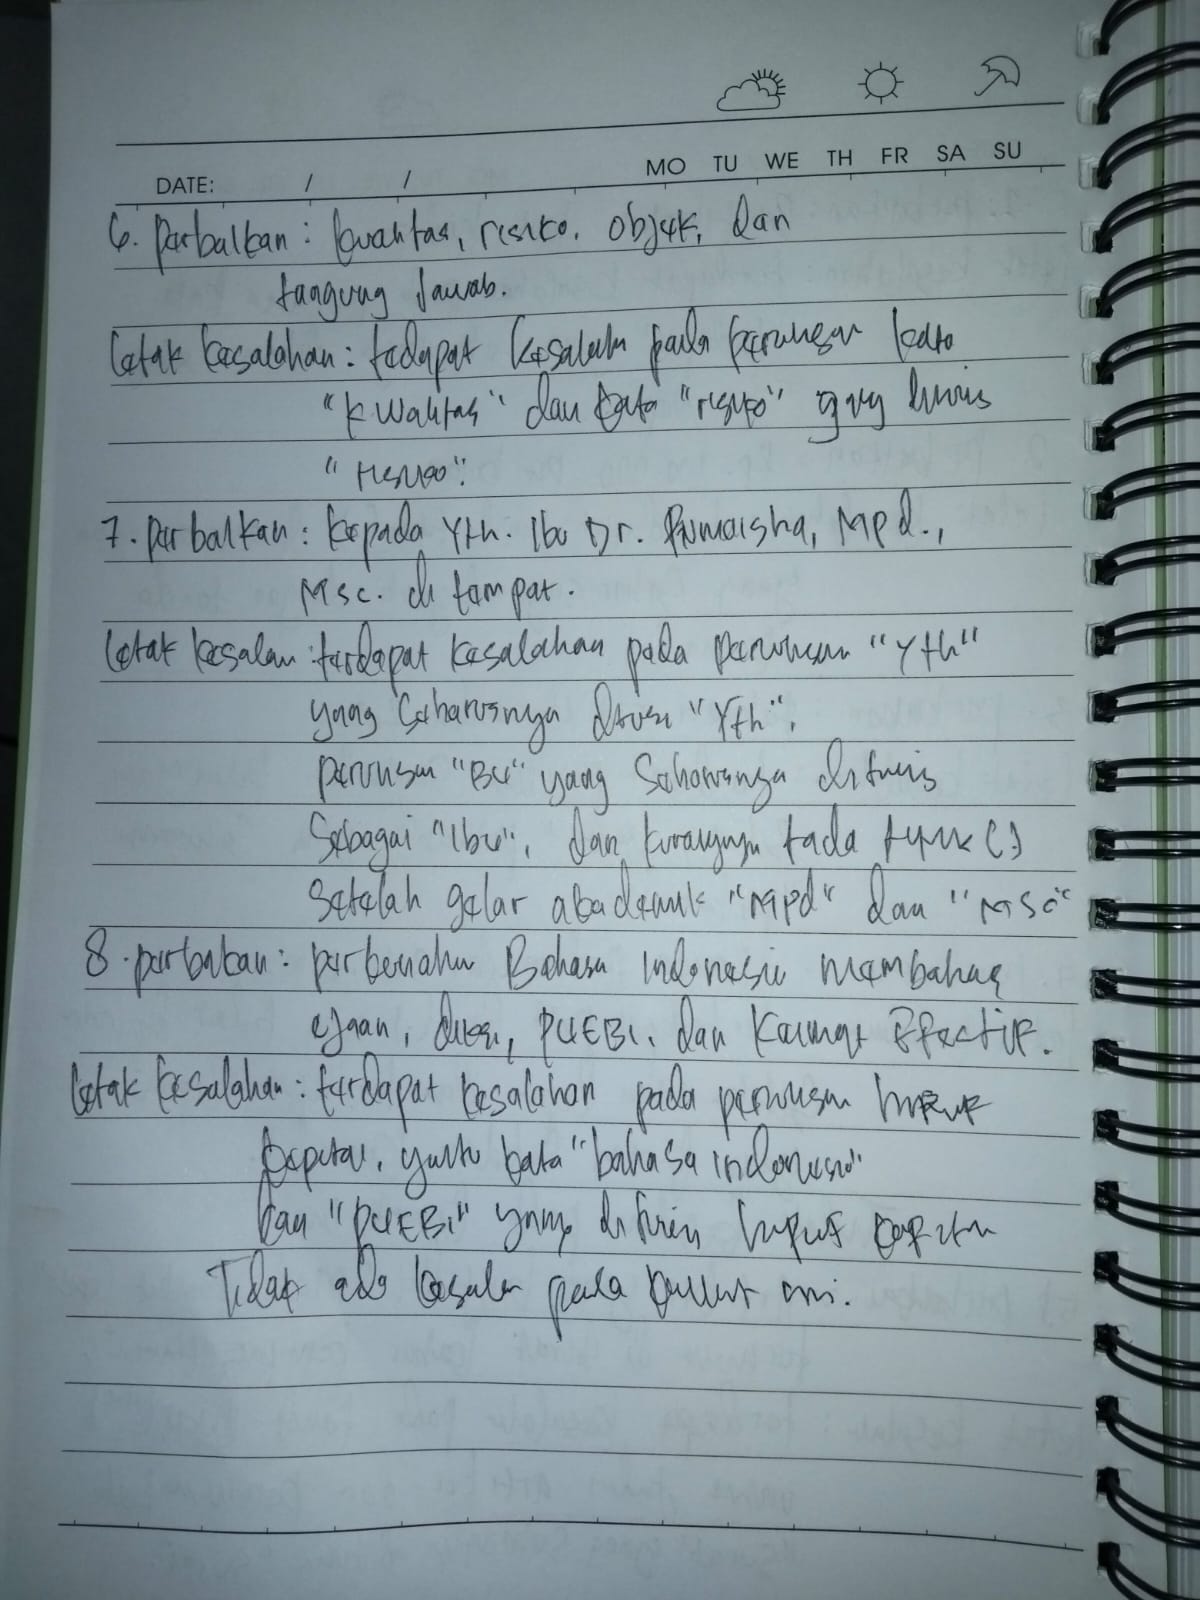 MO TU WE TH FR SA SU
DATE: / /
6. Perbaikan: kualitas, risiko, objek, dan
tanggung Jawab.
letak kesalahan: tedapat kesalah pada penulisan kata
"kwalitas" dan kata "risiko" yang ditulis
"resiko".
7. perbaikan: kepada Yth. Ibu Dr. Rumaisha, Mpd.,
Msc. di tampat.
letak kesalan: terdapat kesalahan pada penulisan "yth"
yang seharusnya ditulis "Yth".
penulisan "Bu" yang seharusnya ditulis
sebagai "Ibu", dan kurangnya tada titik (.)
setelah gelar akademik "Mpd" dan "MSc"
8. perbaikan: pembenahan Bahasa Indonesia membahas
ejaan, diksi, PUEBI, dan Kalimat Efektif.
letak kesalahan: terdapat kesalahan pada penulisan huruf
kapital, yaitu kata "bahasa indonesia"
dan "PUEBI" yang ditulis huruf kapital
Tidak ada kesalan pada kalimat ini.